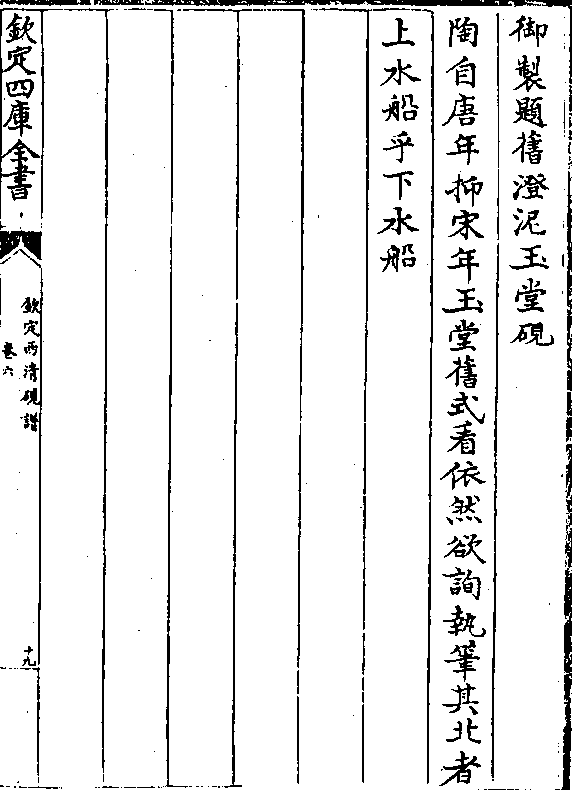 御製題舊澄泥玉堂硯
陶自唐年抑宋年玉堂舊式看依然欲詢執筆其北者
上水船乎下水船
欽定四庫全書
欽定西清硯譜
卷六
十九